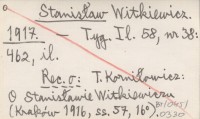 Stanisław Witkiewicz.
1917. — Tyg. Il. 58, nr 38:
462, il.
Rec. o: T. Korniłowicz:
O Stanisławie Witkiewiczu
(Kraków 1916, ss. 57, 16°).